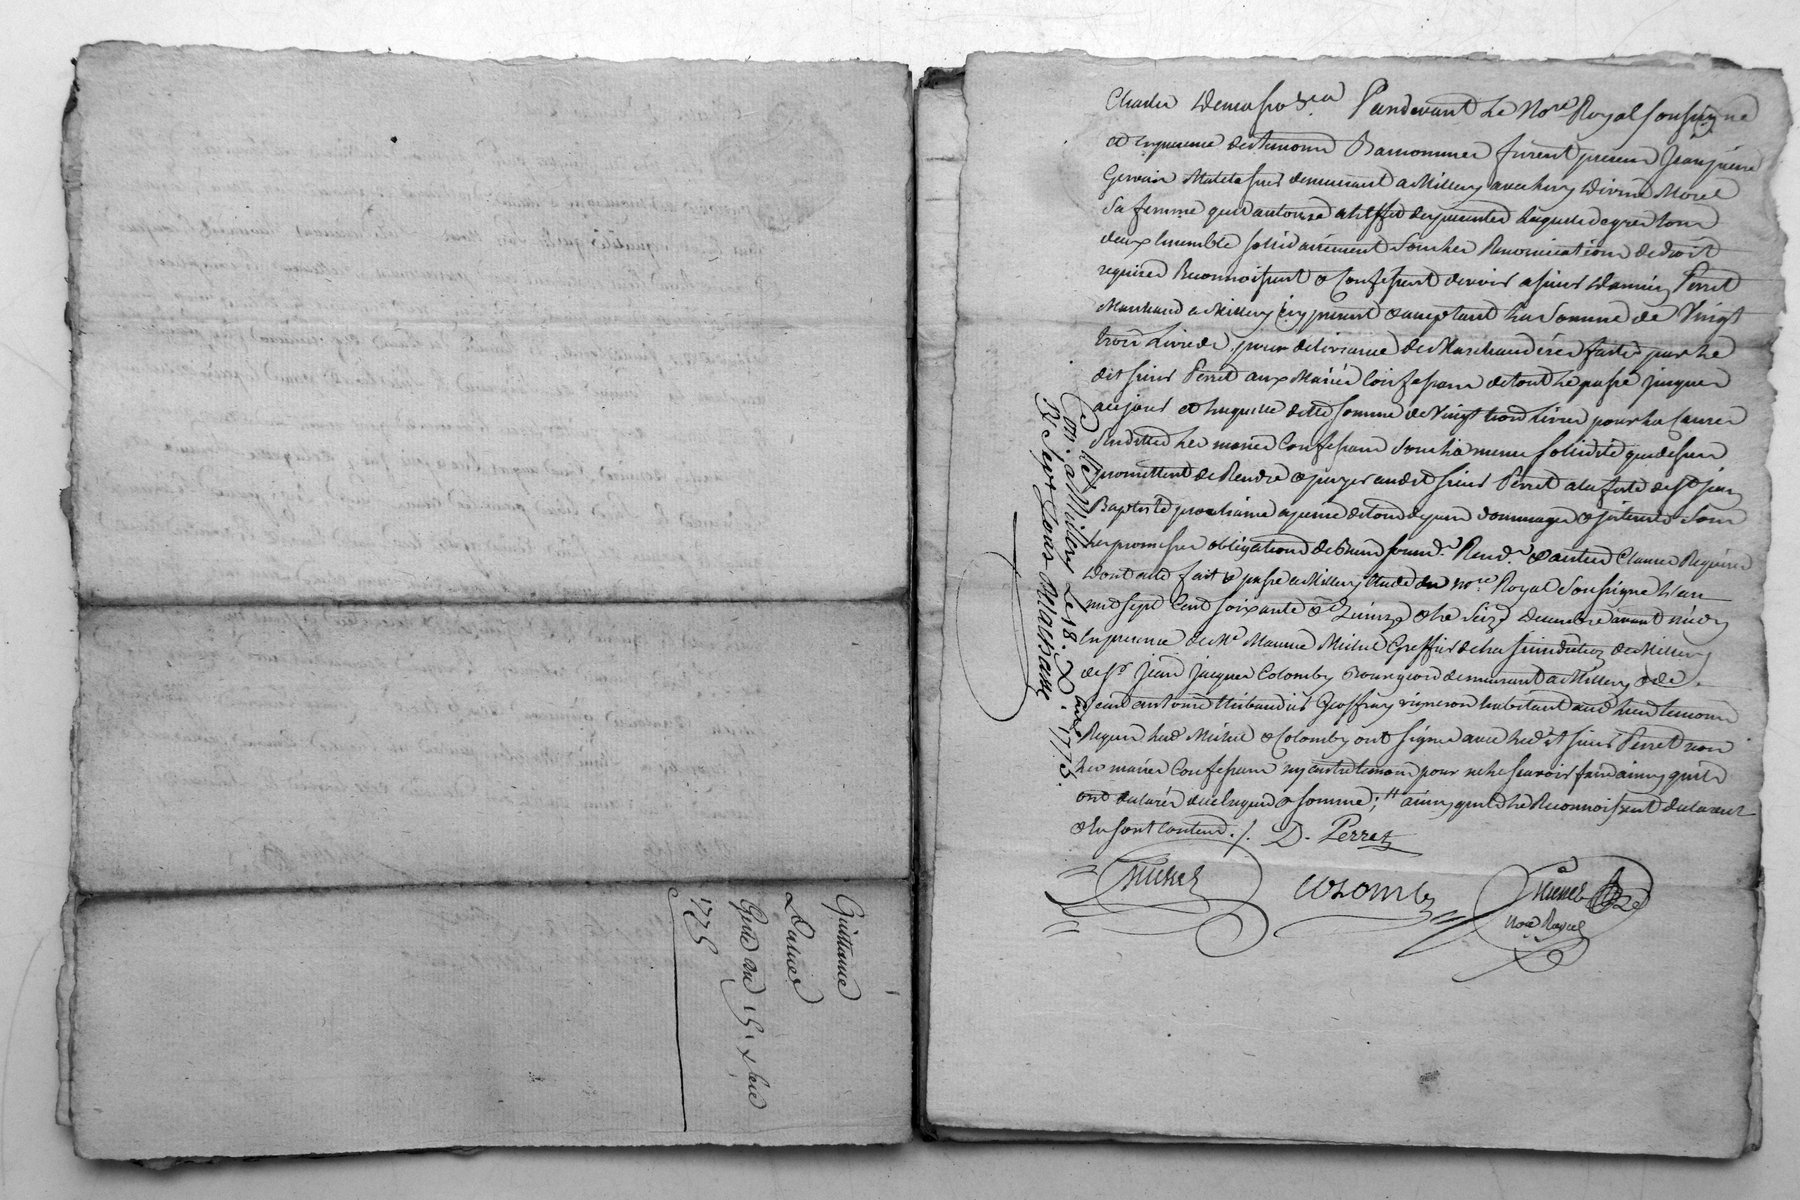 Guillaume
Grée du 15. xbre
1775
Pardevant Le No.re Royal soussigné
et en presence des temoins Bas nommes furent presens Jean pierre
Gervais demeurant a Millery avec Morel
Sa femme qu'il autorise a l'effet des presentes laquelle de gré tous
deux ensemble sollidairement sous les Renonciations de droit
requises Reconnoissent & Confessent devoir a sieur Damien Perret
Marchand a Millery icy present & acceptant La Somme de Vingt
trois Livres pour delivrance de Marchandises faites par Le
dit sieur Perret aux Mariés Confessans de tout le passé jusques
a ce jour et laquelle ditte somme de Vingt trois Livres pour les Causes
Sus dittes Les mariés Confessans sous la meme sollidité que dessus
promettent de Rendre & payer audit sieur Perret a la fete de St jean
Baptiste prochaine a peine de tous depens dommages & interets Sous
les promesses obligations de Biens soum.n Ren.n & autres Clauses Requises
Dont acte fait & passé a Millery Etude du no.re Royal Soussigné L'an
mil sept Cent soixante & Quinze & le Seize Decembre avant midy
En presence de M.e Michel Greffier de la jurisdiction de Millery
de S.r Jean Jacques Colomby Bourgeois demeurant a Millery & de
Jean antoine Geoffray vigneron habitant aud. lieu temoins
Requis Lesd. Michel & Colomby ont signé avec Led.it sieur Perret non
Les mariés Confessans ny l'autre temoin pour ne le savoir faire ainsy qu'ils
ont declaré de ce enquis & sommés; ainsy qu'ils le Reconnoissent declarent
& en sont contens ./. D. Perret
Michel Colomby Michel
No.re Royal
C.llé a Millery Le 18. Xbre 1775.
R. Sept sous